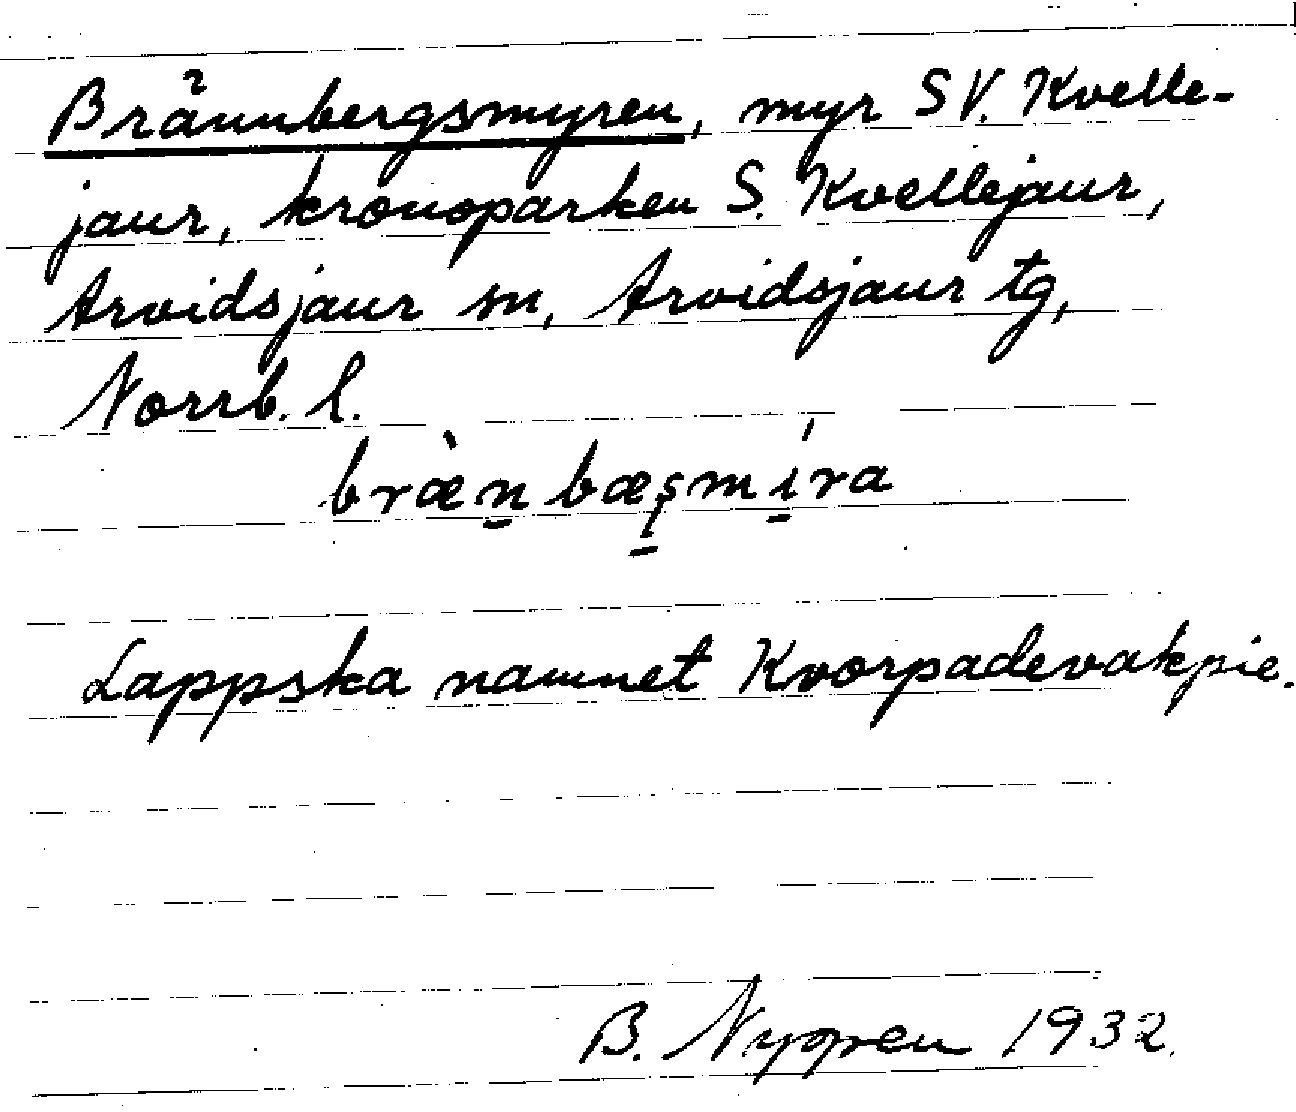 Brännbergsmyren, myr SV. Kvelle-
jaur, kronoparken S. Kvellejaur,
Arvidsjaur sn, Arvidsjaur tg,
Norrb. l.
bræ̀n̠bæʂ̠mí̠ra
Lappska namnet Kvorpadevakpie.
B. Nygren 1932.